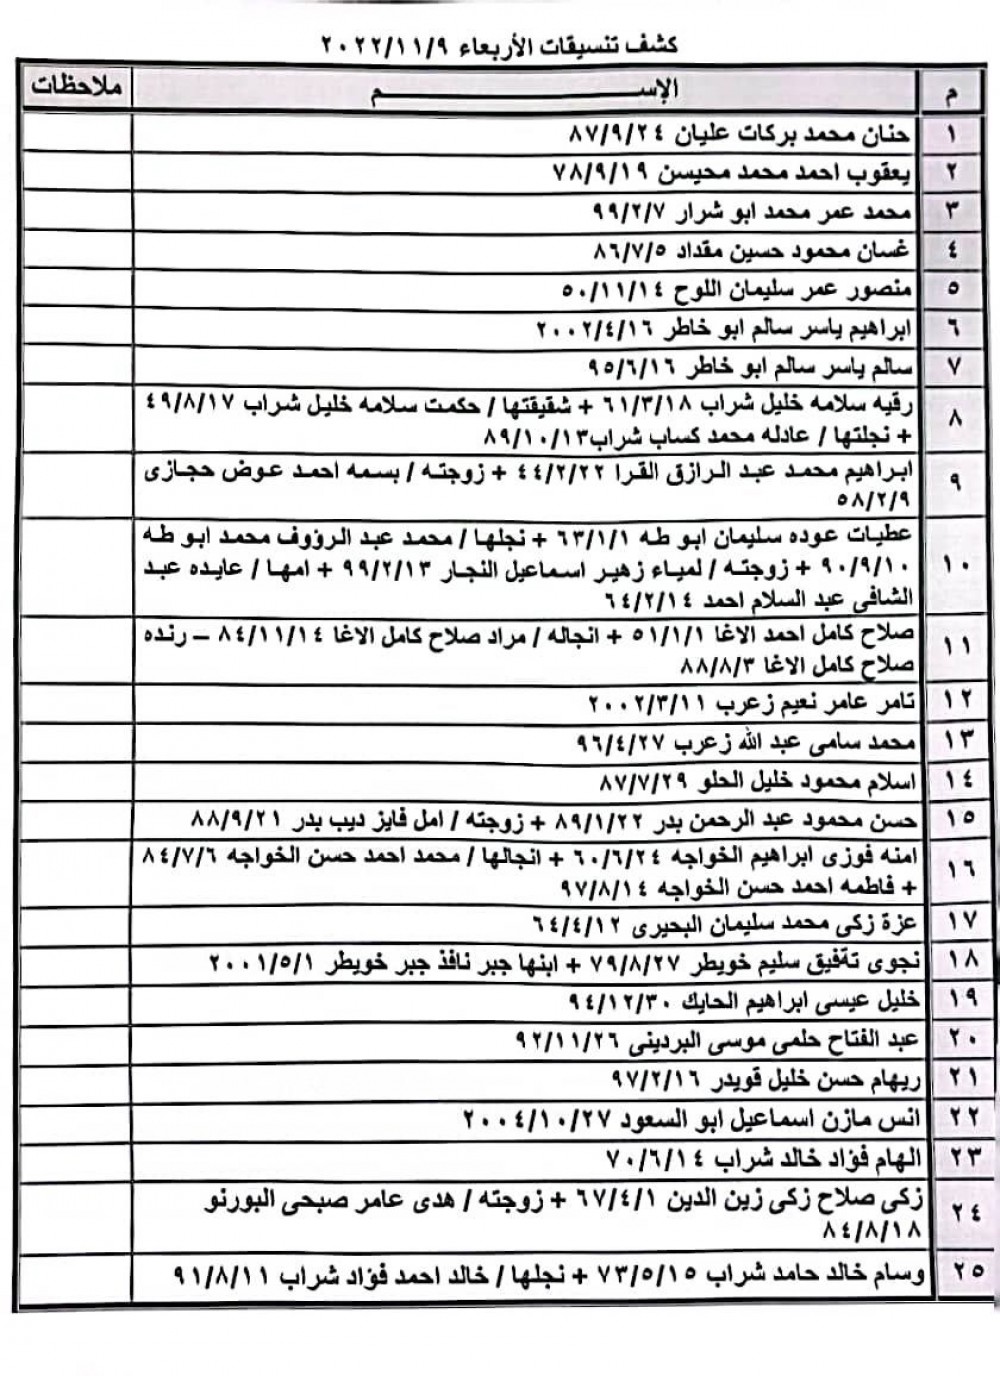 كشف تنسيقات الأربعاء ٢٠٢٢/١١/٩
م الإســـــــــــــم ملاحظات
١ حنان محمد بركات عليان ٨٧/٩/٢٤
٢ يعقوب احمد محمد محيسن ٧٨/٩/١٩
٣ محمد عمر محمد ابو شرار ٩٩/٢/٧
٤ غسان محمود حسين مقداد ٨٦/٧/٥
٥ منصور عمر سليمان اللوح ٥٠/١١/١٤
٦ ابراهيم ياسر سالم ابو خاطر ٢٠٠٢/٤/١٦
٧ سالم ياسر سالم ابو خاطر ٩٥/٦/١٦
٨ رقيه سلامه خليل شراب ٦١/٣/١٨ + شقيقتها / حكمت سلامه خليل شراب ٤٩/٨/١٧
+ نجلتها / عادله محمد كساب شراب٨٩/١٠/١٣
٩ ابراهيم محمد عبد الرازق القرا ٤٤/٢/٢٢ + زوجته / بسمه احمد عوض حجازى
٥٨/٢/٩
١٠ عطيات عوده سليمان ابو طه ٦٣/١/١ + نجلها / محمد عبد الرؤوف محمد ابو طه
٩٠/٩/١٠ + زوجته / لمياء زهير اسماعيل النجار ٩٩/٢/١٣ + امها / عايده عبد
الشافى عبد السلام احمد ٦٤/٢/١٤
١١ صلاح كامل احمد الاغا ٥١/١/١ + انجاله / مراد صلاح كامل الاغا ٨٤/١١/١٤ – رنده
صلاح كامل الاغا ٨٨/٨/٣
١٢ تامر عامر نعيم زعرب ٢٠٠٢/٣/١١
١٣ محمد سامى عبد الله زعرب ٩٦/٤/٢٧
١٤ اسلام محمود خليل الحلو ٨٧/٧/٢٩
١٥ حسن محمود عبد الرحمن بدر ٨٩/١/٢٢ + زوجته / امل فايز ديب بدر ٨٨/٩/٢١
١٦ امنه فوزى ابراهيم الخواجه ٦٠/٦/٢٤ + انجالها / محمد احمد حسن الخواجه ٨٤/٧/٦
+ فاطمه احمد حسن الخواجه ٩٧/٨/١٤
١٧ عزة زكى محمد سليمان البحيرى ٦٤/٤/١٢
١٨ نجوى تةفيق سليم خويطر ٧٩/٨/٢٧ + ابنها جبر نافذ جبر خويطر ٢٠٠١/٥/١
١٩ خليل عيسى ابراهيم الحايك ٩٤/١٢/٣٠
٢٠ عبد الفتاح حلمى موسى البردينى ٩٢/١١/٢٦
٢١ ريهام حسن خليل قويدر ٩٧/٢/١٦
٢٢ انس مازن اسماعيل ابو السعود ٢٠٠٤/١٠/٢٧
٢٣ الهام فؤاد خالد شراب ٧٠/٦/١٤
٢٤ زكى صلاح زكى زين الدين ٦٧/٤/١ + زوجته / هدى عامر صبحى البورنو
٨٤/٨/١٨
٢٥ وسام خالد حامد شراب ٧٣/٥/١٥ + نجلها / خالد احمد فؤاد شراب ٩١/٨/١١